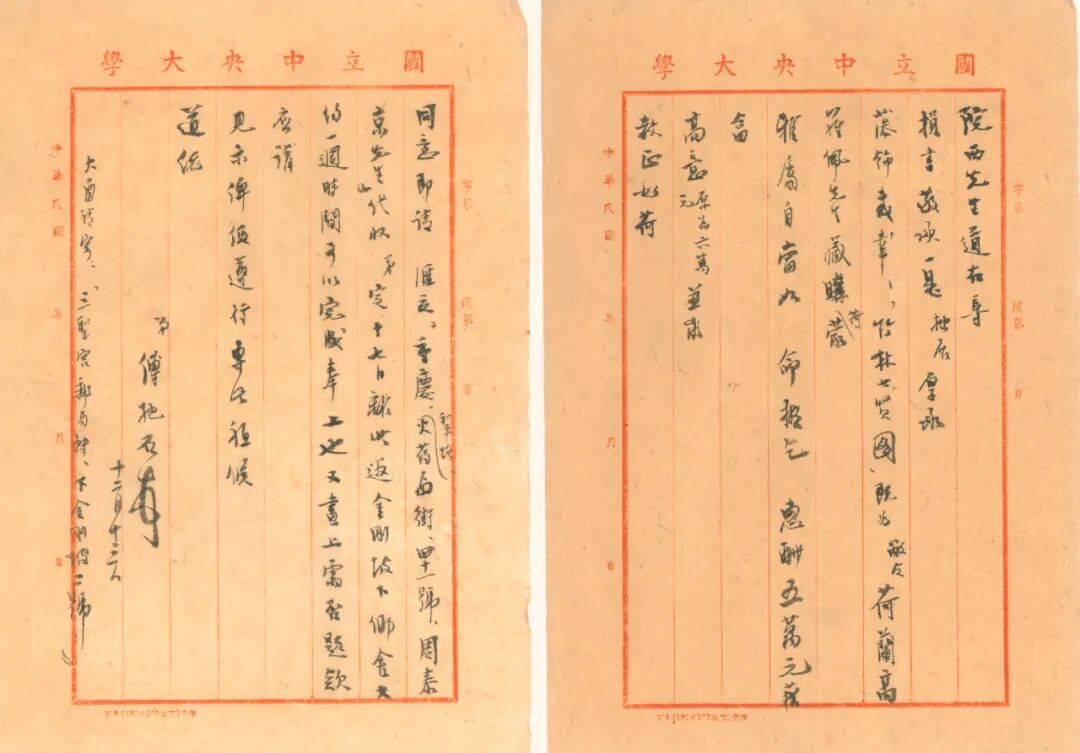 國立中央大學
字第 號第 頁
院西先生道右辱
捐書敬頌一是拙展厚承
藻飾感幸〻竹林七賢圖、既為敝友荷蘭高
羅佩先生藏購荷蒙
雅屬自當如命擬乞惠酬五萬元藉
畣
高意原為六萬元並求
教正如荷
中華民國 年 月 日
國立中央大學
字第 號第 頁
同意即請滙交、重慶、和平路、四十一號、周泰
京先生代收、弟定十七日離此返金剛坡下鄉舍大
約一週時間可以完成奉上也又畫上需否題欵
請
見示俾便遵行專此祗候
道綏
弟傅抱石
十二月十三日
大函請寄、三聖宮郵局轉、下金剛坡二號
中華民國 年 月 日